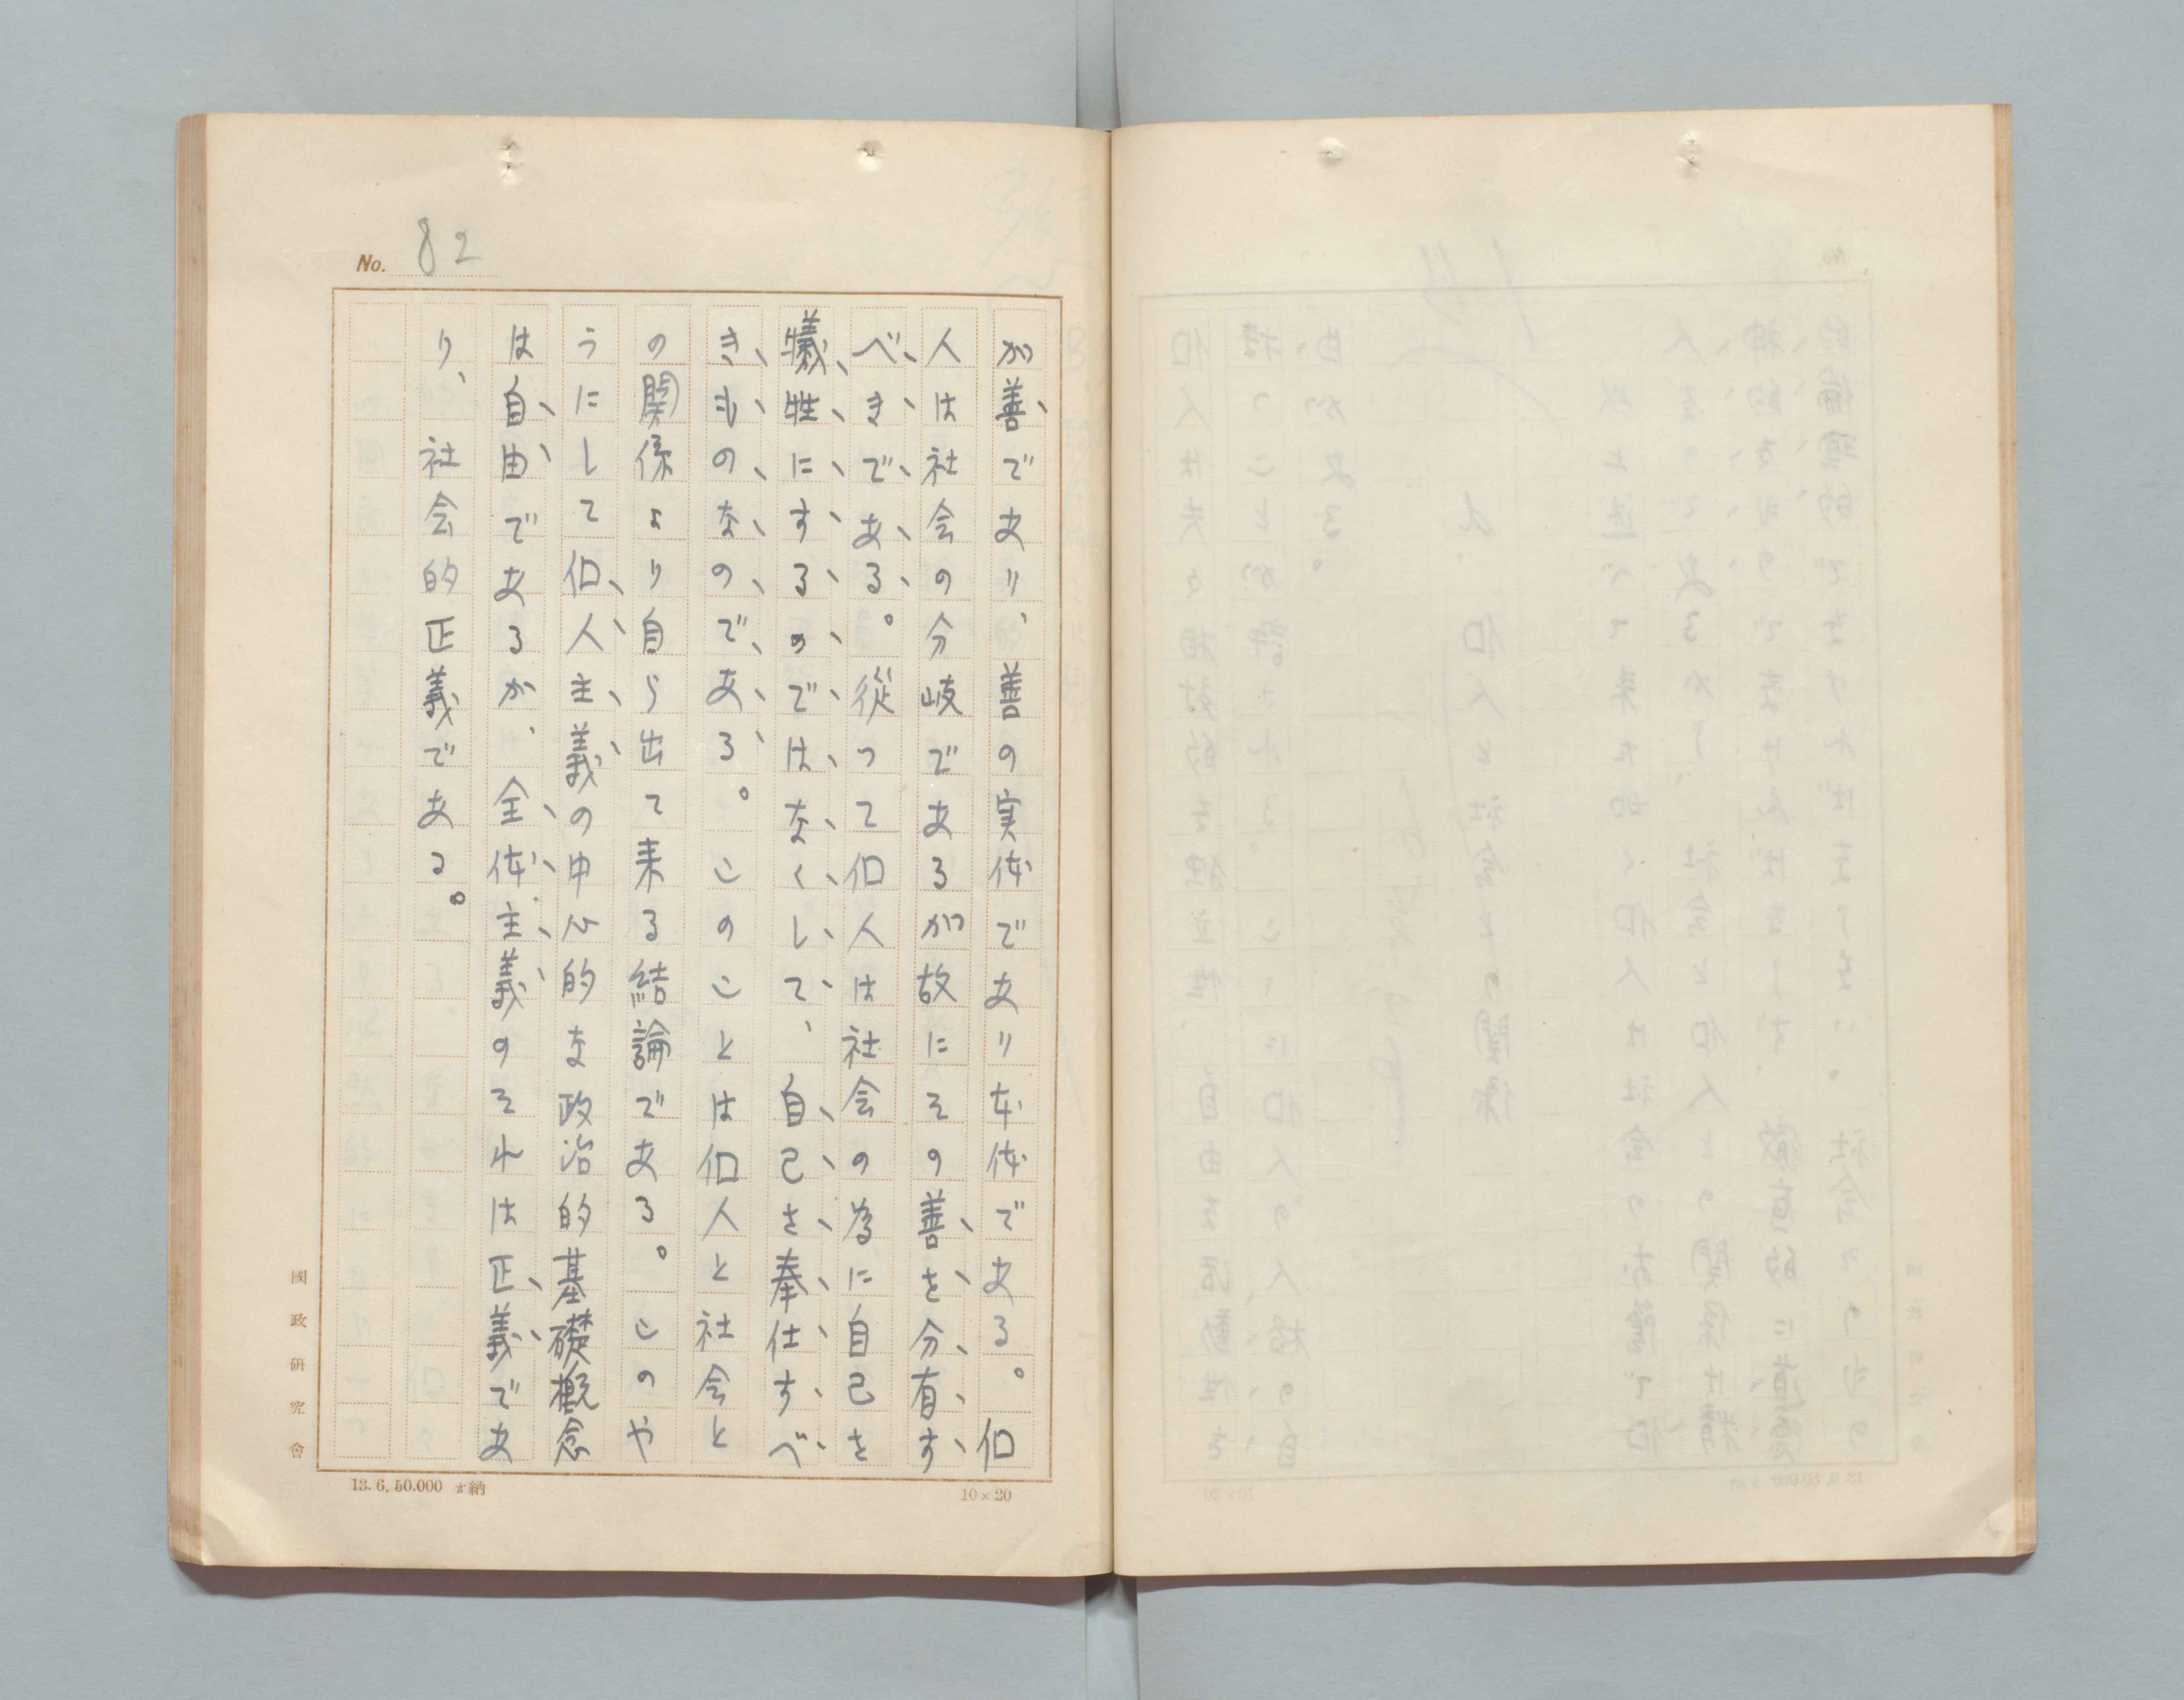 No. 82
が善であり、善の実体であり本体である。個
人は社会の分岐であるが故にその善を分有す
べきである。從って個人は社会の為に自己を
犠牲にするのではなくして、自己を奉仕すべ
きものなのである。このことは個人と社会と
の関係より自ら出て来る結論である。このや
うにして個人主義の中心的な政治的基礎概念
は自由であるが、全体主義のそれは正義であ
り、社会的正義である。
國政研究會
13.6.50.000 納
10×20